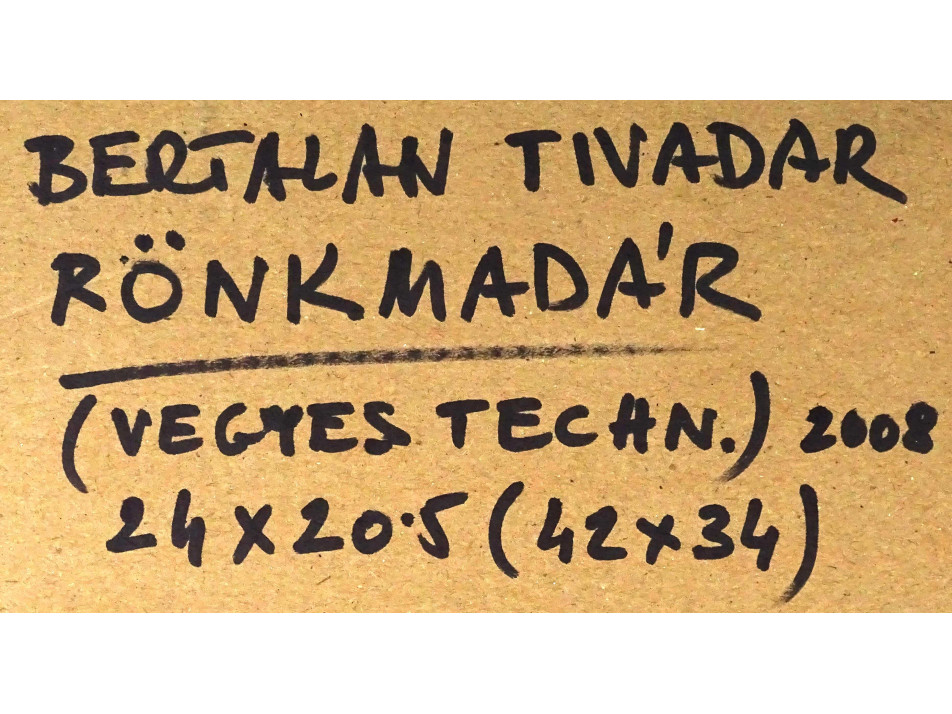 BERTALAN TIVADAR
RÖNKMADÁR
(VEGYES TECHN.) 2008
24x20.5 (42x34)